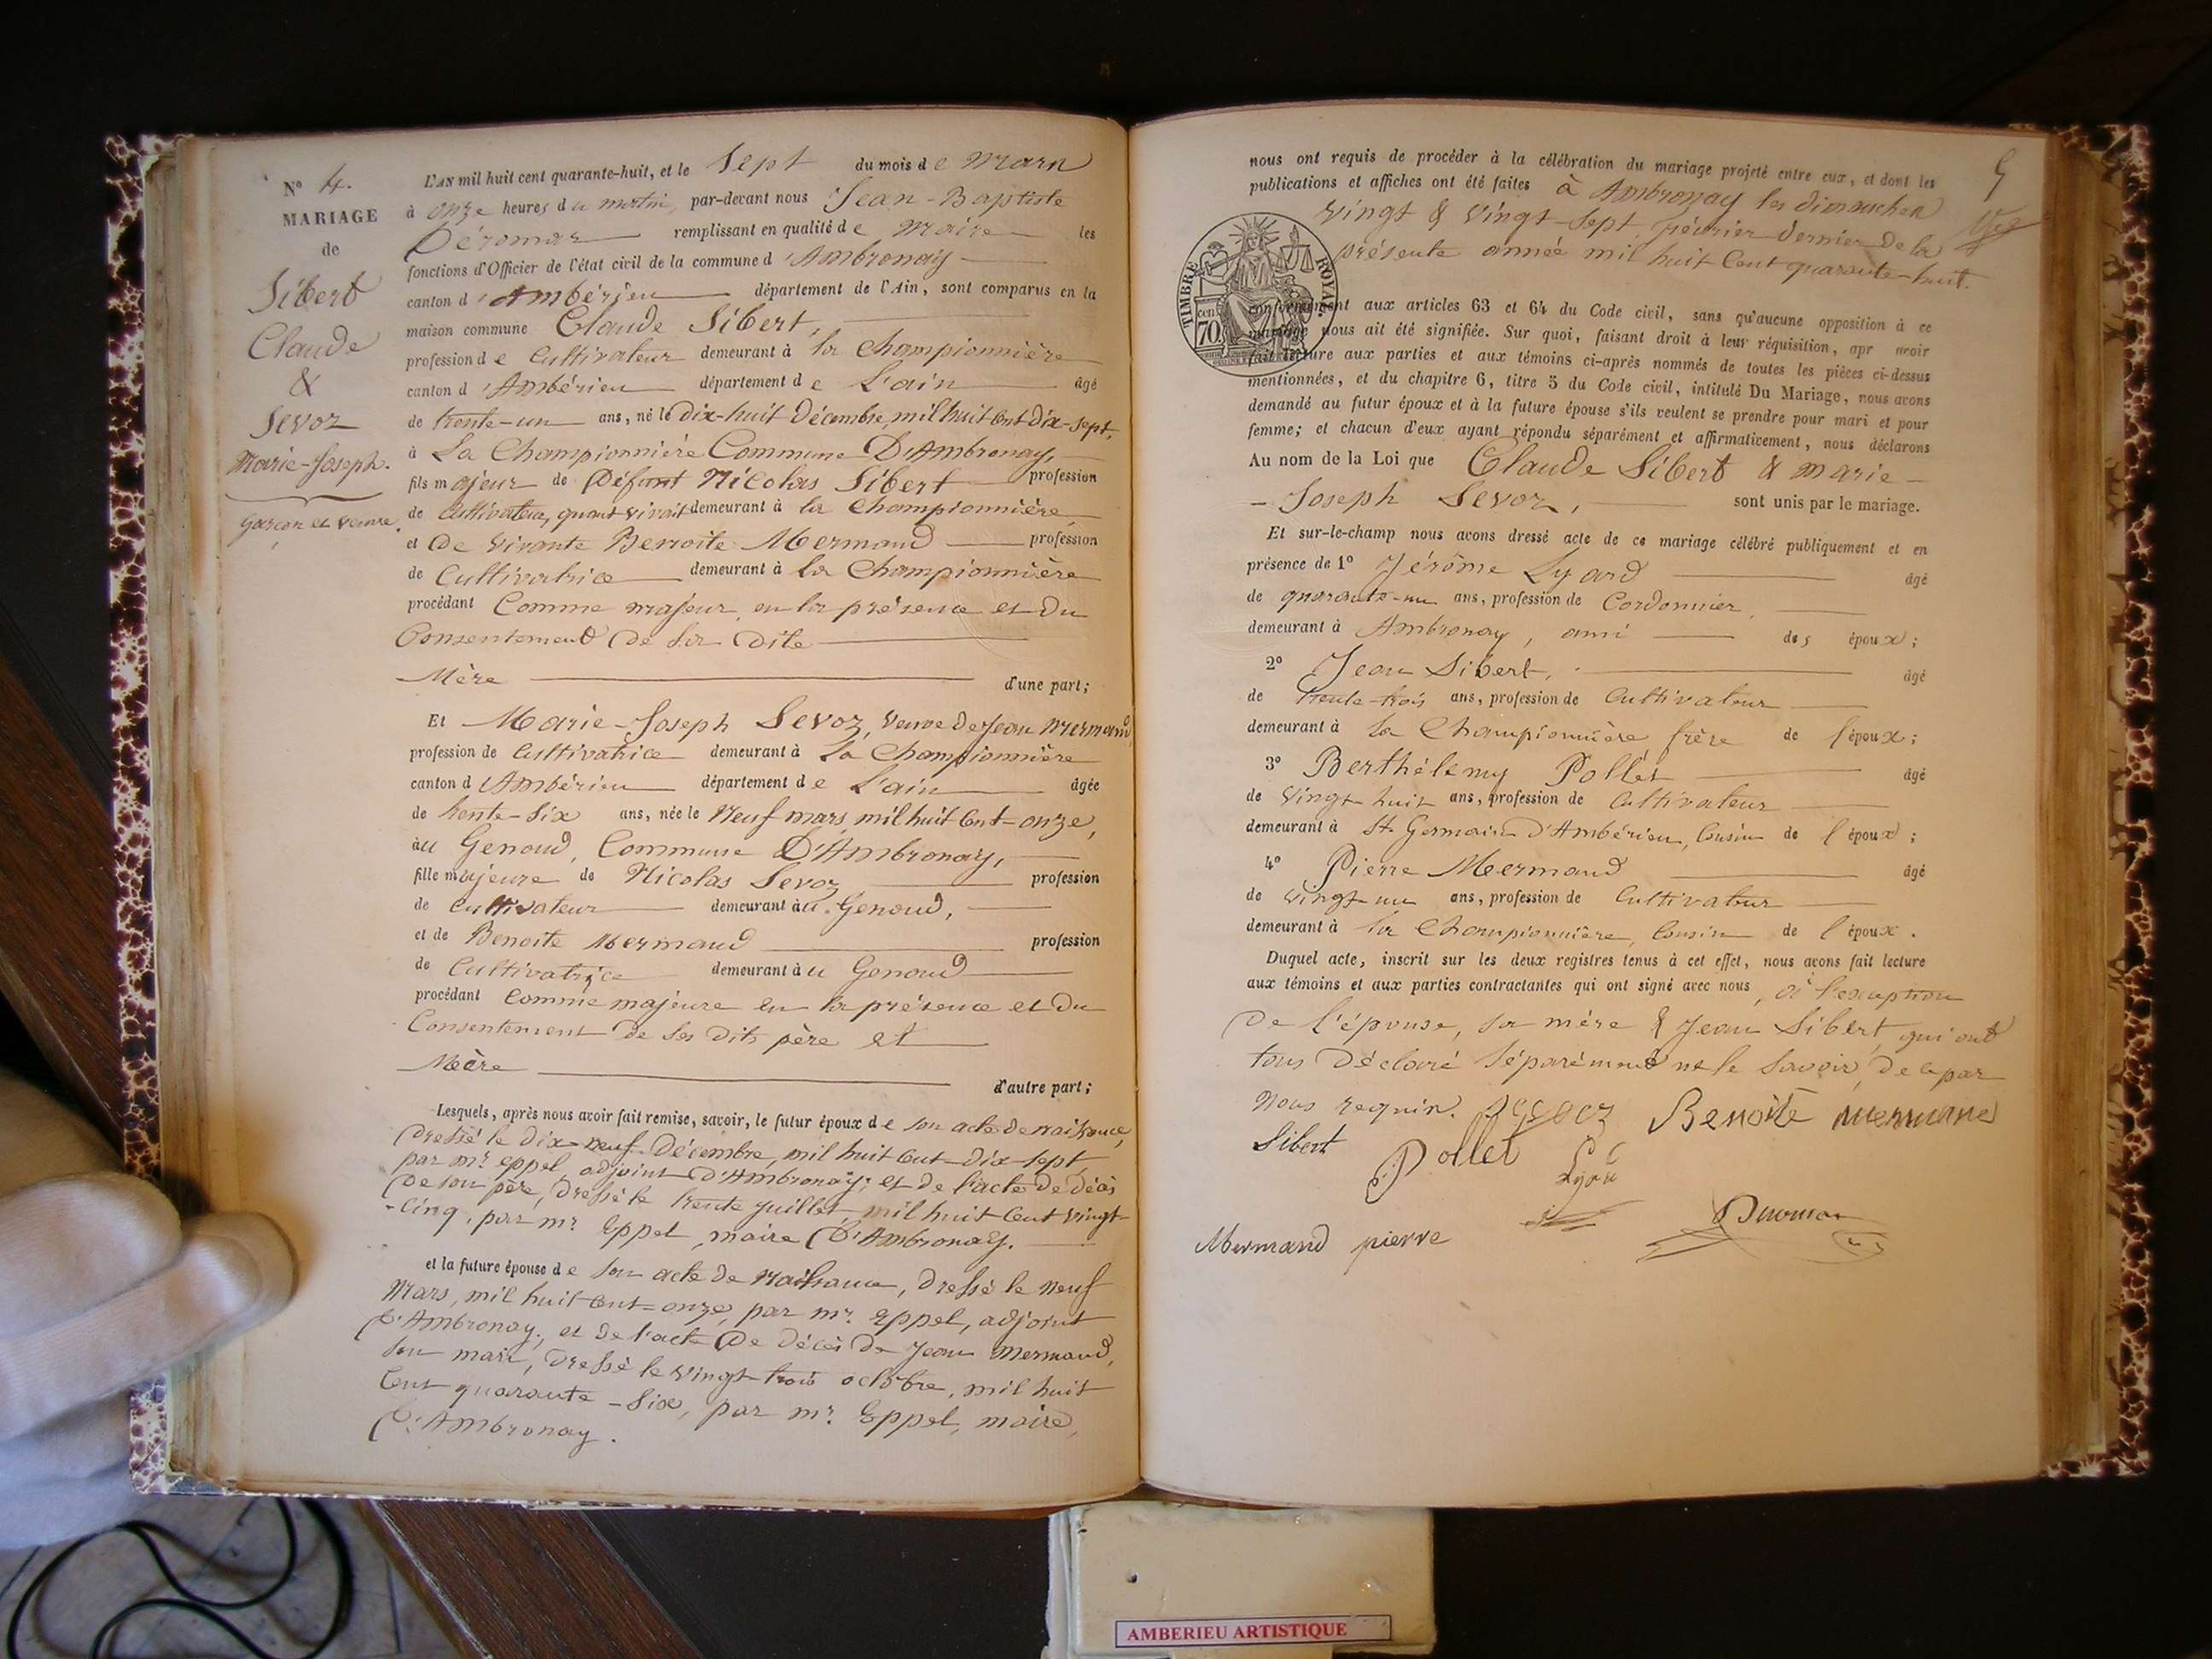 N° 4.
MARIAGE
de
Sibert
Claude
&
Sevoz
Marie-Joseph.
garçon et veuve.
L'AN mil huit cent quarante-huit, et le Sept du mois de mars
à onze heures du matin, par-devant nous Jean-Baptiste
Déromas remplissant en qualité de maire les
fonctions d'Officier de l'état civil de la commune d'Ambronay
canton d'Ambérieu département de l'Ain, sont comparus en la
maison commune Claude Sibert,
profession de Cultivateur demeurant à la Championnière
canton d'Ambérieu département de L'ain âgé
de trente-un ans, né le dix-huit Décembre, mil huit Cent Dix-sept,
à La Championnière Commune D'Ambronay,
fils majeur de Défunt Nicolas Sibert profession
de Cultivateur, quant vivait demeurant à la Championnière
et De vivante Benoite Mermand profession
de Cultivatrice demeurant à la Championnière
procédant Comme majeur, en la présence et du
Consentement De Sa Dite
Mère d'une part;
Et Marie-Joseph Sevoz, Veuve De Jean Mermand
profession de Cultivatrice demeurant à La Championnière
canton d'Ambérieu département de L'ain âgée
de trente-six ans, née le Neuf mars, mil huit Cent-onze,
àu Genoud, Commune D'Ambronay,
fille majeure de Nicolas Sevoz profession
de Cultivateur demeurant àu Genoud,
et de Benoite Mermand profession
de Cultivatrice demeurant àu Genoud
procédant Comme majeure en la présence et du
Consentement De Ses Dits père et
Mère d'autre part;
Lesquels, après nous avoir fait remise, savoir, le futur époux de son acte de naissance,
Dressé le Dix-neuf Décembre, mil huit Cent-Dix sept,
par mr. Eppel, adjoint D'Ambronay; et de l'acte De Décès
De son père, Dressé le trente juillet, mil huit Cent vingt-
-Cinq, par mr. Eppel, maire D'Ambronay.
et la future épouse de son acte de Naissance, Dressé le neuf
Mars, mil huit Cent-onze, par mr. Eppel, adjoint
D'Ambronay; et de l'acte De Décès De Jean Mermand,
son mari, Dressé le vingt-trois octobre, mil huit
Cent quarante-Six, par mr. Eppel, maire,
D'Ambronay.
5
nous ont requis de procéder à la célébration du mariage projeté entre eux, et dont les
publications et affiches ont été faites à Ambronay les dimanches
vingt & vingt-Sept, février Dernier De la
présente année mil huit Cent quarante-huit.
TIMBRE ROYAL.
70 cen
conformément aux articles 63 et 64 du Code civil, sans qu'aucune opposition à ce
mariage nous ait été signifiée. Sur quoi, faisant droit à leur réquisition, apr avoir
fait lecture aux parties et aux témoins ci-après nommés de toutes les pièces ci-dessus
mentionnées, et du chapitre 6, titre 5 du Code civil, intitulé Du Mariage, nous avons
demandé au futur époux et à la future épouse s'ils veulent se prendre pour mari et pour
femme; et chacun d'eux ayant répondu séparément et affirmativement, nous déclarons
Au nom de la Loi que Claude Sibert & marie-
-Joseph Sevoz, sont unis par le mariage.
Et sur-le-champ nous avons dressé acte de ce mariage célébré publiquement et en
présence de 1° Jérôme Lyard âgé
de quarante-un ans, profession de Cordonnier,
demeurant à Ambronay, ami des époux;
2° Jean Sibert, âgé
de trente-trois ans, profession de Cultivateur
demeurant à la Championnière frère de l'époux;
3° Berthélemy Pollet âgé
de vingt-huit ans, profession de Cultivateur
demeurant à St. Germain D'Ambérieu, Cousin de l'époux;
4° Pierre Mermand âgé
de vingt-un ans, profession de Cultivateur
demeurant à la Championnière, Cousin de l'époux.
Duquel acte, inscrit sur les deux registres tenus à cet effet, nous avons fait lecture
aux témoins et aux parties contractantes qui ont signé avec nous, à l'exception
De l'épouse, sa mère & Jean Sibert, qui ont
tous Déclaré Séparément ne le Savoir, De ce par
Nous requis. Benoite mermand
Sibert Pollet Lyar
Mermand pierre
AMBERIEU ARTISTIQUE